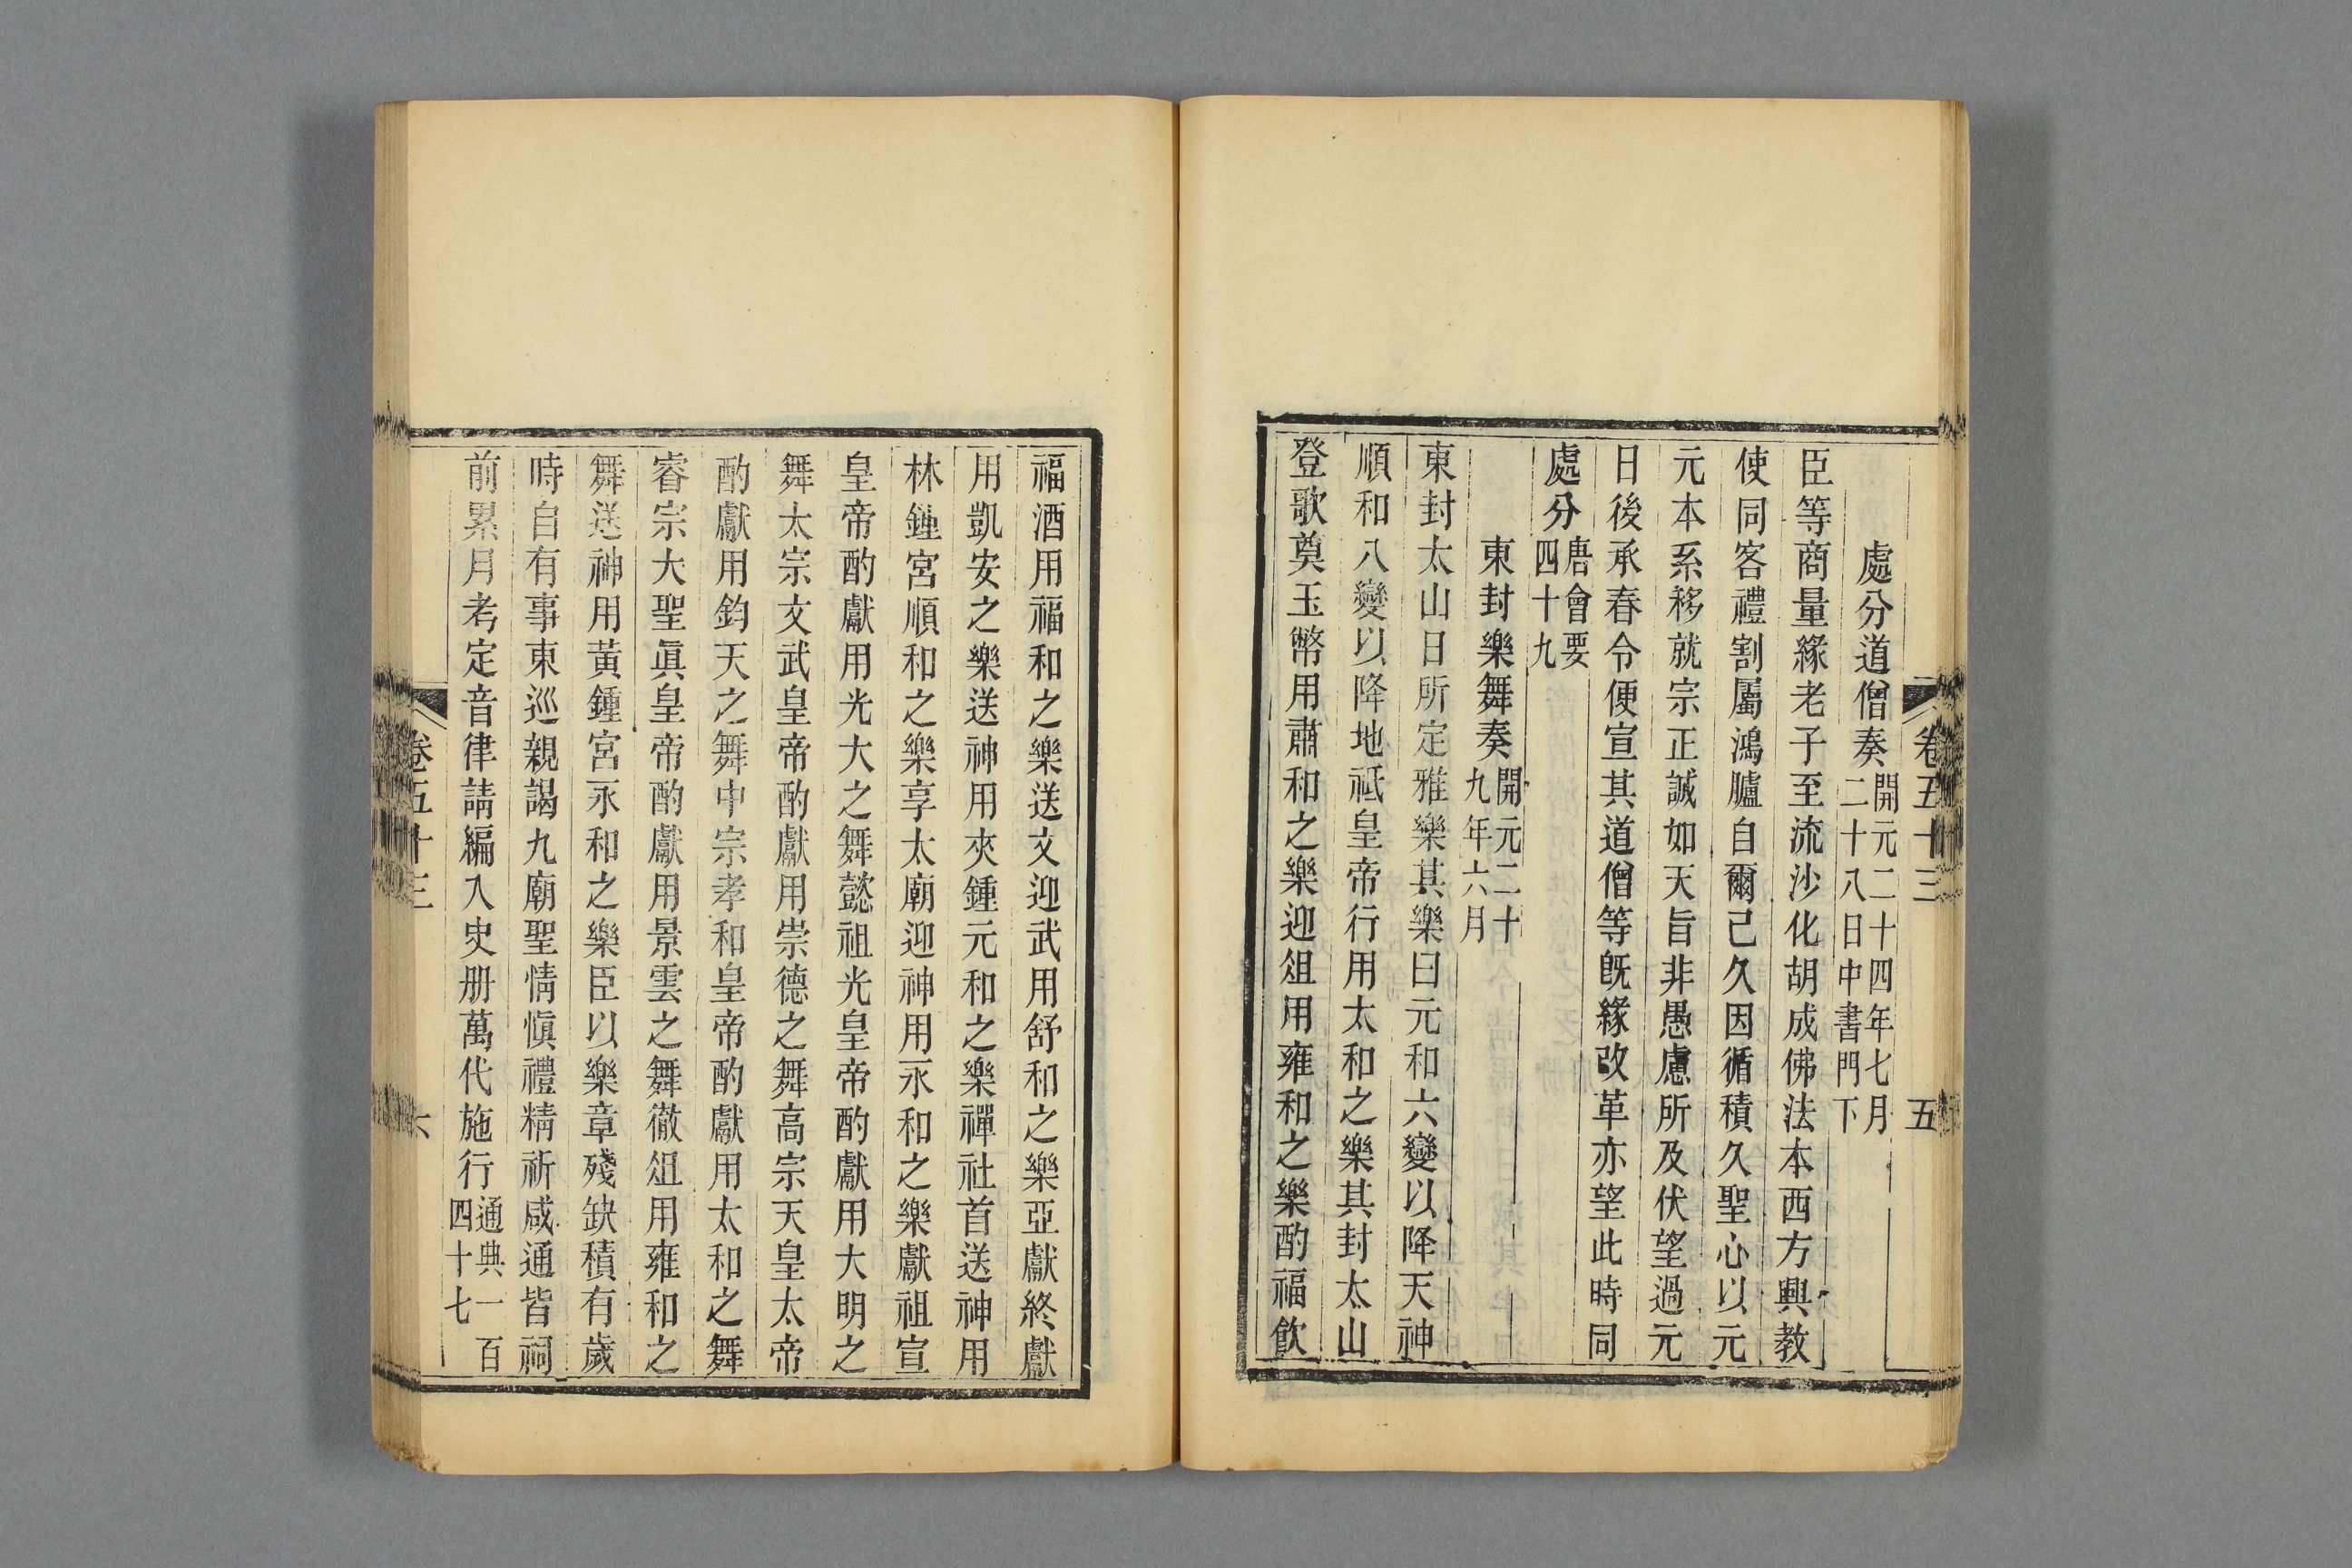 卷五十三 五
處分道僧奏開元二十四年七月二十八日中書門下
臣等商量緣老子至流沙化胡成佛法本西方興教
使同客禮割屬鴻臚自爾已久因循積久聖心以元
元本系移就宗正誠如天旨非愚慮所及伏望過元
日後承春令便宣其道僧等旣緣改革亦望此時同
處分唐會要四十九
東封樂舞奏開元二十九年六月
東封太山日所定雅樂其樂曰元和六變以降天神
順和八變以降地祗皇帝行用太和之樂其封太山
登歌奠玉幣用肅和之樂迎俎用雍和之樂酌福飮
福酒用福和之樂送文迎武用舒和之樂亞獻終獻
用凱安之樂送神用夾鍾元和之樂禪社首送神用
林鍾宮順和之樂享太廟迎神用永和之樂獻祖宣
皇帝酌獻用光大之舞懿祖光皇帝酌獻用大明之
舞太宗文武皇帝酌獻用崇德之舞高宗天皇太帝
酌獻用鈞天之舞中宗孝和皇帝酌獻用太和之舞
睿宗大聖眞皇帝酌獻用景雲之舞徹俎用雍和之
舞送神用黃鍾宮永和之樂臣以樂章殘缺積有歲
時自有事東巡親謁九廟聖情愼禮精祈咸通皆祠
前累月考定音律請編入史册萬代施行通典一百四十七
卷五十三 六